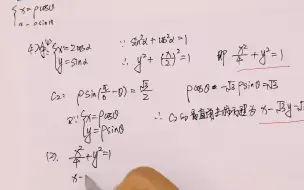 {x=ρcosθ
{x=2cosα
y=sinα
∵ sin²α+cos²α=1
∴ y²+(x/2)²=1
即 x²/4+y²=1
C₂: ρsin(π/6-θ)=√3/2
ρcosθ-√3ρsinθ=√3
∵{x=ρcosθ
y=ρsinθ
x-√3y-√3
(2). x²/4+y²=1
x-